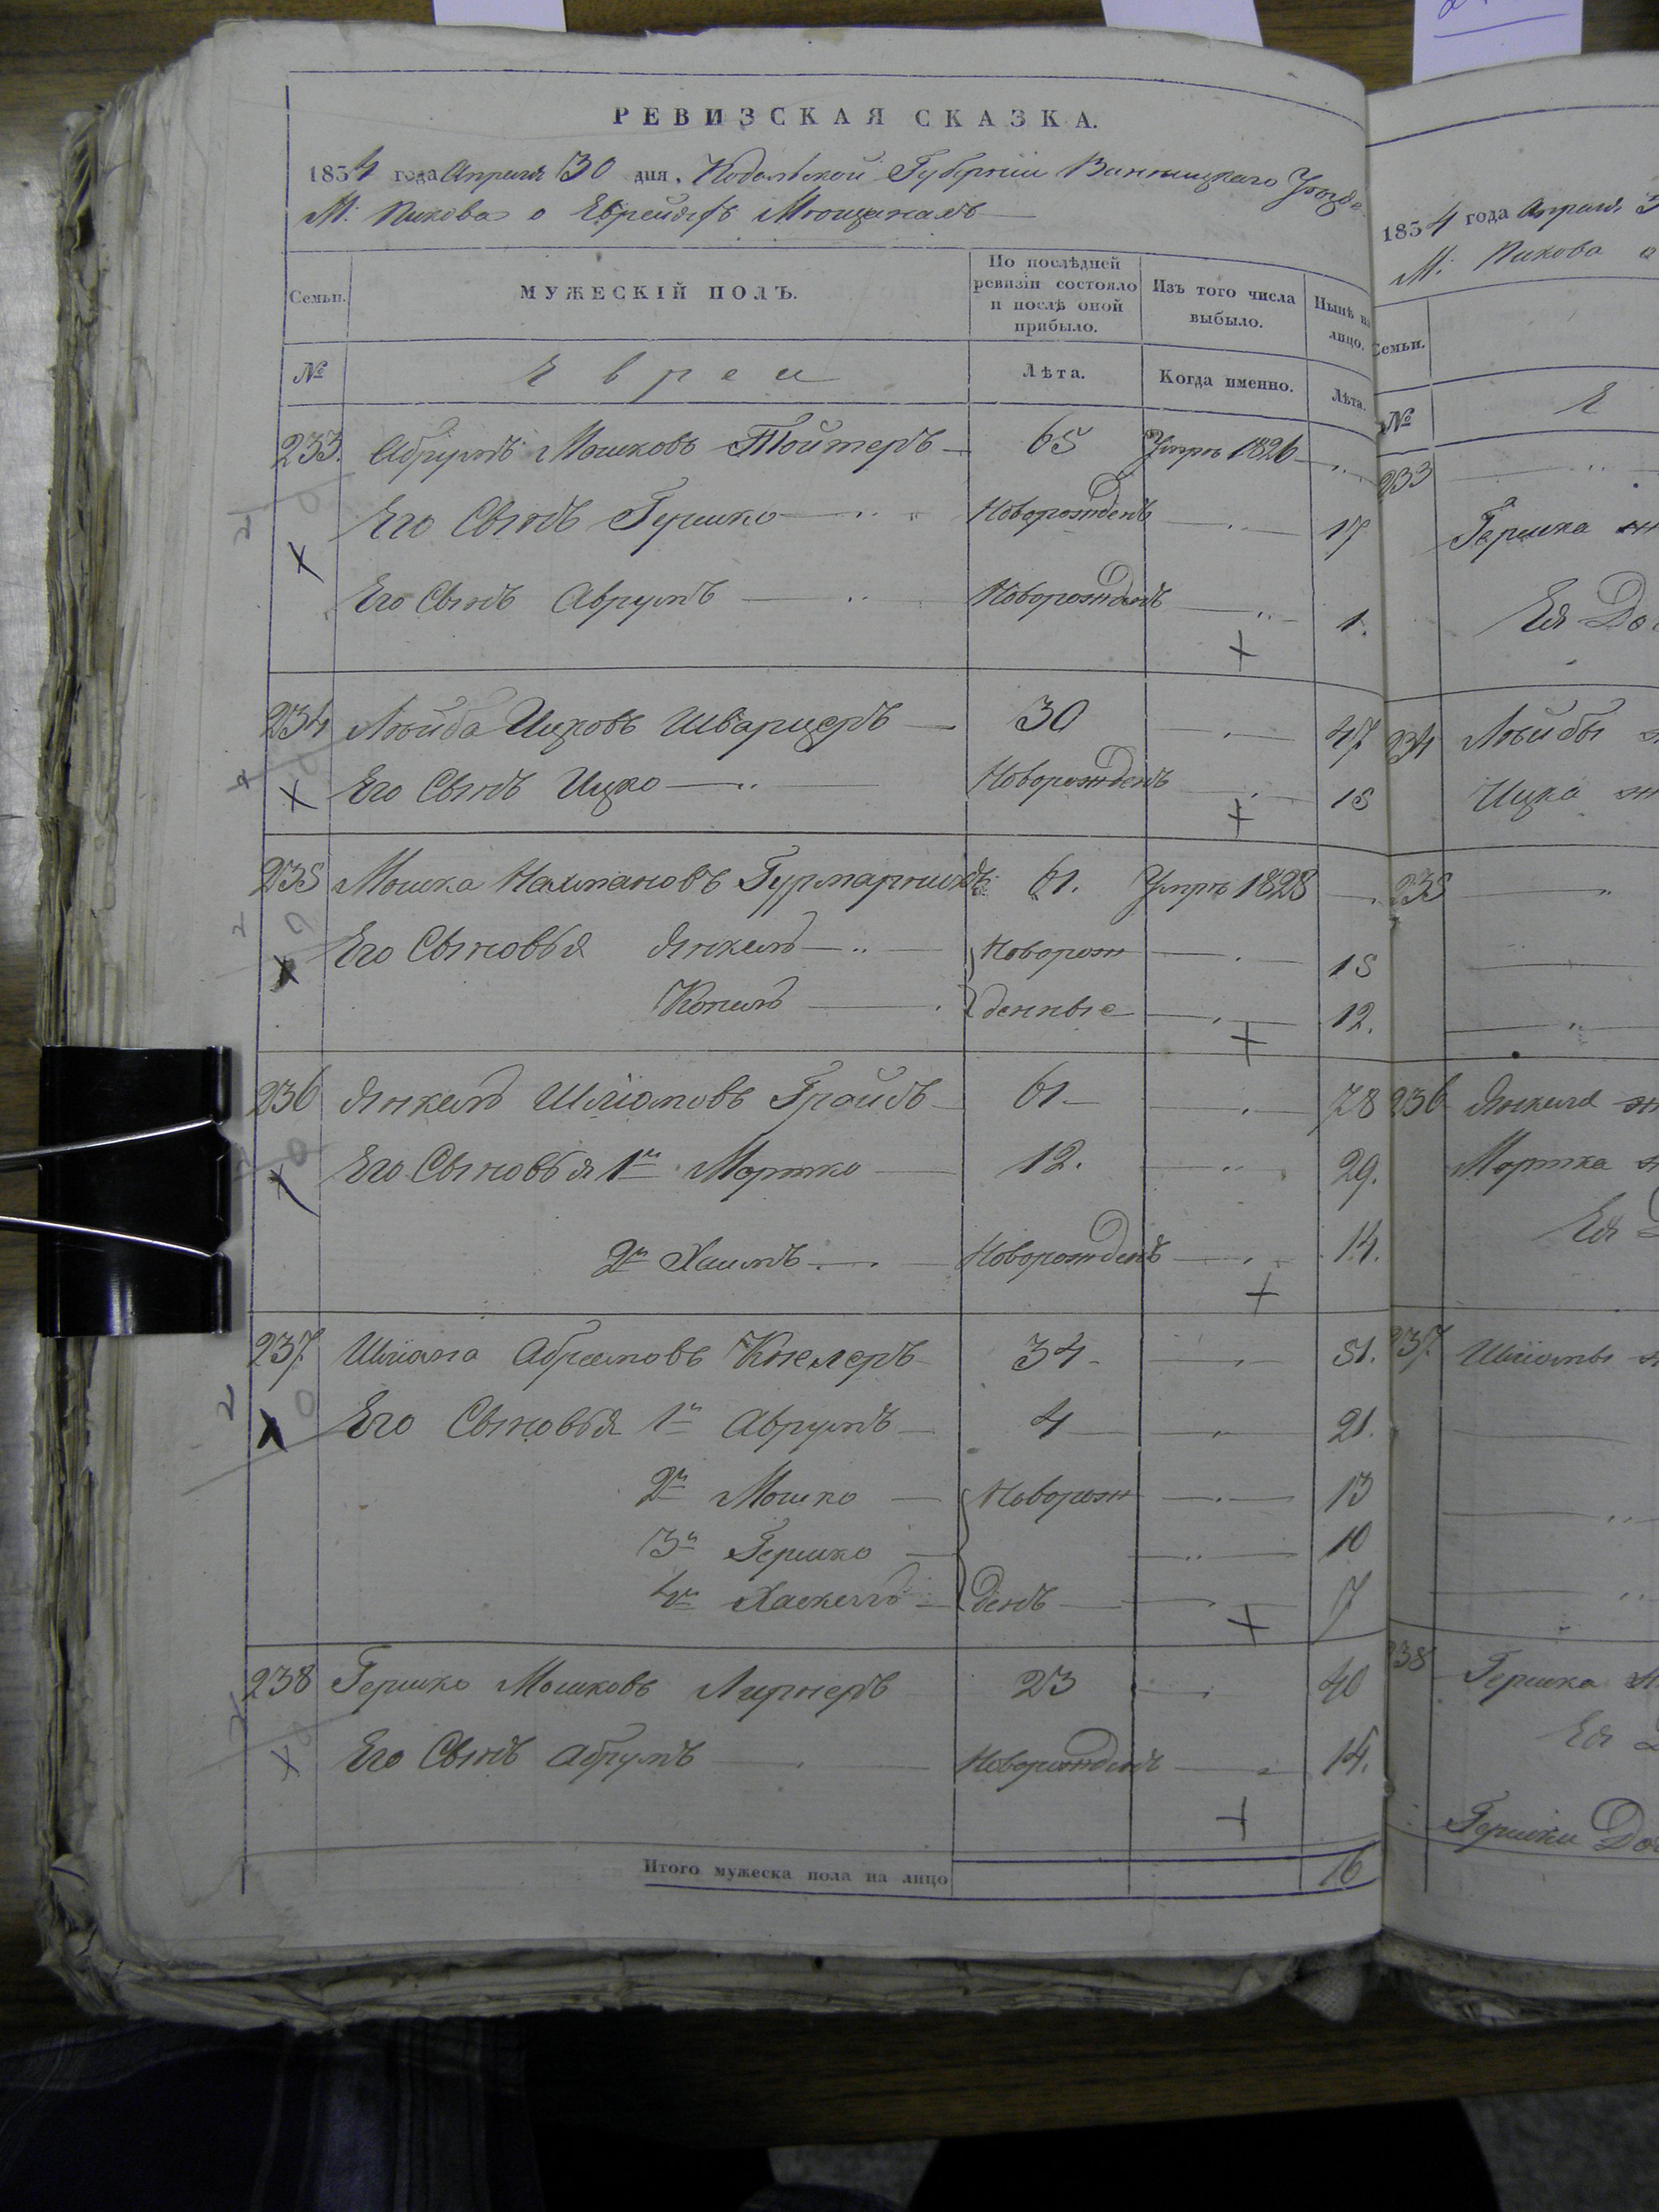 РЕВИЗСКАЯ СКАЗКА.
1834 года Апреля 30 дня. Подольской Губерніи Винницкаго Уѣзда
М: Пикова о Еврейскихъ Мѣщанахъ
Семьи. МУЖЕСКІЙ ПОЛЪ. По послѣдней ревизіи состояло и послѣ оной прибыло. Изъ того числа выбыло. Нынѣ на лицо.
№ Евреи Лѣта. Когда именно. Лѣта.
233. Абрумъ Мошковъ Тойтеръ 65 Умре 1826
Его Сынъ Гершко Новорожденъ 17
Его Сынъ Аврумъ Новорожденъ 1.
234 Лейба Ицковъ Шварцеръ 30 47
Его Сынъ Ицко Новорожденъ 15
235 Мошка Нахмановъ 61. Умре 1828
Его Сыновья Янкель Новорож 15
Копель денные 12.
236 Янкель Шліомовъ Гройсъ 61 78
Его Сыновья 1й Мортко 12. 29.
2й Хаимъ Новорожденъ 14.
237. Шліома Абрамовъ Кнелеръ 34 51.
Его Сыновья 1й Аврумъ 4 21.
2й Мошко Новорож 13
3й Гершко 10
4й Хаскель денъ 7
238 Гершко Мошковъ Лирнеръ 23 40
Его Сынъ Абрумъ Новорожденъ 14.
Итого мужеска пола на лицо 16
1834 года Апреля 3
М: Пикова о
Семьи.
№ Е
233
Гершка
Ея До
234 Лейбы
Ицка
235
236 Янкеля
Мортка
Ея
237. Шліомы
238 Гершка
Ея
Гершки До